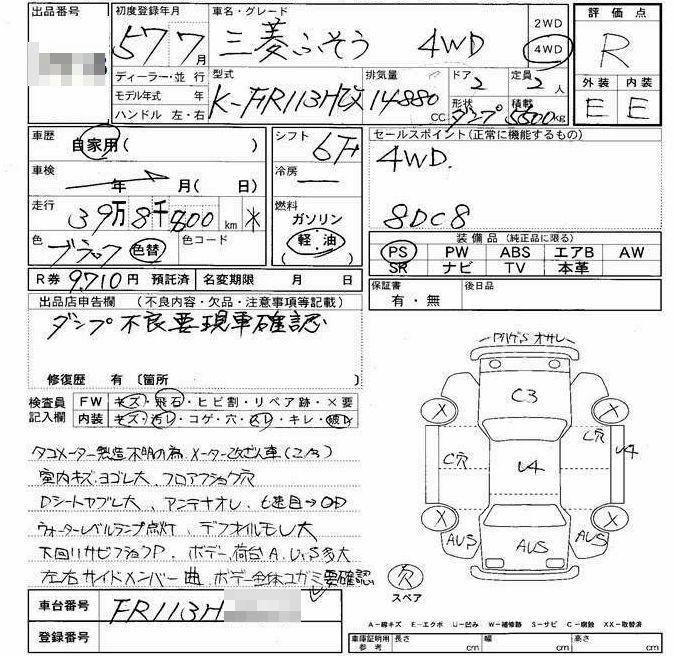 出品番号 初度登録年月 車名・グレード 2WD 評価点
57 7月 三菱ふそう 4WD 4WD R
ディーラー・並行 型式 排気量 ドア 定員 外装 内装
モデル年式 年 K-FR113H改 14880 CC 2 2人 E E
ハンドル 左・右 形状 ダンプ 積載 5500kg
車歴 自家用( ) シフト 6F セールスポイント(正常に機能するもの)
車検 年 月( 日) 冷房 4WD.
走行 39万8千800km * 燃料 ガソリン 8DC8
色 ブラック 色替 色コード 軽・油 装備品(純正品に限る)
PS PW ABS エアB AW
SR ナビ TV 本革
R券 9,710円 預託済 名変期限 月 日 保証書 有・無 後日品
出品店申告欄 (不良内容・欠品・注意事項等記載)
ダンプ不良要現車確認
修復歴 有〔箇所 〕
検査員記入欄 FW キズ・飛石・ヒビ割・リペア跡・X要
内装 キズ・汚レ・コゲ・穴・スレ・キレ・破レ
タコメーター製造不明の為 メーター改ざん車(2/3)
室内キズ.ヨゴレ大 フロアフショク穴
Dシートヤブレ大、アンテナオレ、6速目→OD
ウォーターレベルランプ点灯、デフオイルモレ大
下回リサビフショクP. ボデー荷台A.U.S多大
左右サイドメンバー曲 ボデー全体ユガミ要確認
C3
X X
C穴 U4 C穴 U4
X X
AUS AUS AUS
穴
スペア
車台番号 FR113H
登録番号
A－線キズ E－エクボ U－凹み W－補修跡 S－サビ C－腐蝕 XX－取替済
車庫証明用参考 長さ cm 幅 cm 高さ cm